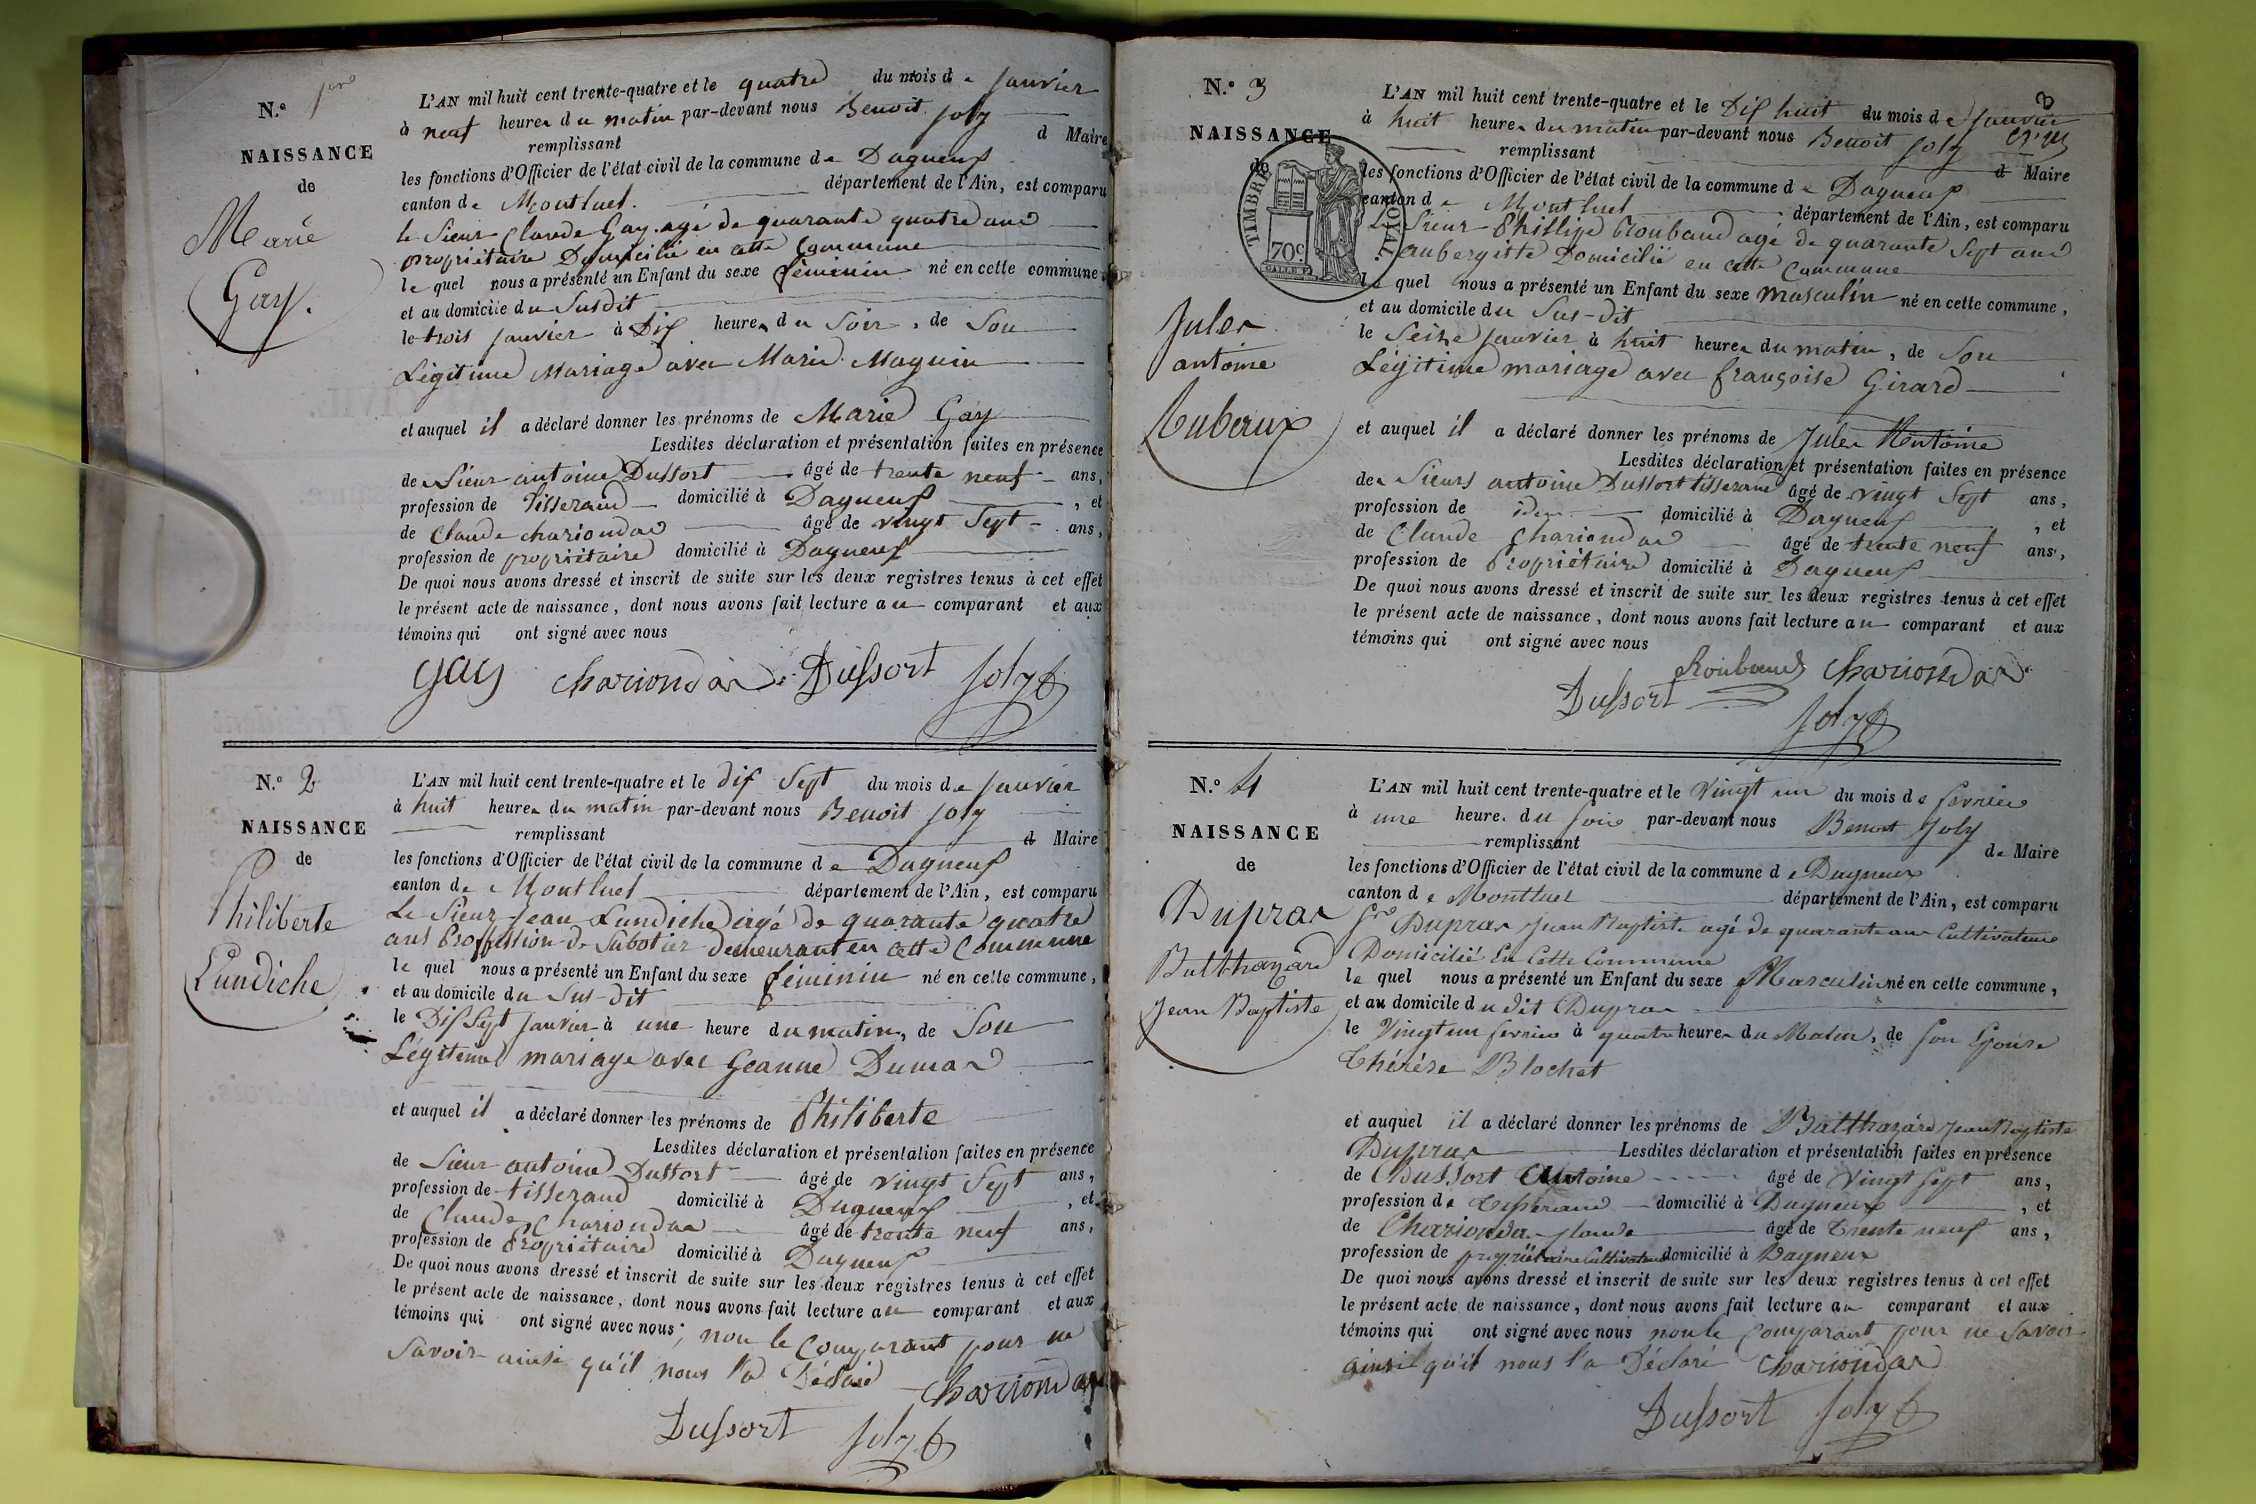 N.° 1er
NAISSANCE
de
Marie
Gay.
L'AN mil huit cent trente-quatre et le quatre du mois de janvier
à neuf heures du matin par-devant nous Benoit Joly
remplissant d Maire
les fonctions d'Officier de l'état civil de la commune de Dagneux
canton de Montluel. département de l'Ain, est comparu
le Sieur Claude Gay agé de quarante quatre ans
propriétaire Domicilié en cette Commune
le quel nous a présenté un Enfant du sexe féminin né en cette commune
et au domicile du Susdit
le trois janvier à Dix heures du Soir, de Son
Légitime Mariage avec Marie Maguin
et auquel il a déclaré donner les prénoms de Marie Gay
Lesdites déclaration et présentation faites en présence
de Sieur antoine Dussort âgé de trente neuf ans,
profession de Tisserand domicilié à Dagneux, et
de Claude charionda âgé de vingt Sept ans,
profession de propriétaire domicilié à Dagneux
De quoi nous avons dressé et inscrit de suite sur les deux registres tenus à cet effet
le présent acte de naissance, dont nous avons fait lecture au comparant et aux
témoins qui ont signé avec nous
Gay Charionda Dussort Joly
N.° 2
NAISSANCE
de
Philiberte
Lundiche
L'AN mil huit cent trente-quatre et le dix Sept du mois de janvier
à huit heures du matin par-devant nous Benoit Joly
remplissant d Maire
les fonctions d'Officier de l'état civil de la commune de Dagneux
canton de Montluel département de l'Ain, est comparu
Le Sieur Jean Lundiche agé de quarante quatre
ans Proffession de Sabotier demeurant en cette Commune
le quel nous a présenté un Enfant du sexe féminin né en cette commune,
et au domicile du Sus-dit
le Dix Sept janvier à une heure du matin, de Son
Légitime mariage avec Geanne Dumas
et auquel il a déclaré donner les prénoms de Philiberte
Lesdites déclaration et présentation faites en présence
de Sieur antoine Dussort âgé de vingt Sept ans,
profession de tisserand domicilié à Dagneux, et
de Claude Charionda âgé de trente neuf ans,
profession de Propriétaire domicilié à Dagneux
De quoi nous avons dressé et inscrit de suite sur les deux registres tenus à cet effet
le présent acte de naissance, dont nous avons fait lecture au comparant et aux
témoins qui ont signé avec nous; non le Comparant pour ne
Savoir ainsi qu'il nous l'a Déclaré
Charionda
Dussort Joly
N.° 3
NAISSANCE
de
TIMBRE ROYAL
70c
Jules
antoine
Rubaux
3
L'AN mil huit cent trente-quatre et le Dix huit du mois de janvier
à huit heures du matin par-devant nous Benoit Joly
remplissant d Maire
les fonctions d'Officier de l'état civil de la commune de Dagneux
canton de Montluel département de l'Ain, est comparu
Le Sieur Phillipe Roubaud agé de quarante Sept ans
aubergiste Domicilié en cette Commune
le quel nous a présenté un Enfant du sexe masculin né en cette commune,
et au domicile du Sus-dit
le Seize janvier à huit heures du matin, de Son
Légitime mariage avec françoise Girard
et auquel il a déclaré donner les prénoms de Jules Antoine
Lesdites déclaration et présentation faites en présence
des Sieurs antoine Dussort tisserand âgé de vingt Sept ans,
profession de idem domicilié à Dagneux, et
de Claude Charionda âgé de trente neuf ans,
profession de Propriétaire domicilié à Dagneux
De quoi nous avons dressé et inscrit de suite sur les deux registres tenus à cet effet
le présent acte de naissance, dont nous avons fait lecture au comparant et aux
témoins qui ont signé avec nous
Roubaud Charionda
Dussort
Joly
N.° 4
NAISSANCE
de
Dupras
Balthazard
Jean Baptiste
L'AN mil huit cent trente-quatre et le Vingt un du mois de fevrier
à une heure du soir par-devant nous Benoit Joly
remplissant de Maire
les fonctions d'Officier de l'état civil de la commune de Dagneux
canton de Montluel département de l'Ain, est comparu
Sr Dupras Jean Baptiste agé de quarante ans Cultivateur
Domicilié En Cette Commune
le quel nous a présenté un Enfant du sexe Masculin né en cette commune,
et au domicile dudit Dupras
le Vingt un fevrier à quatre heures du Matin, de son Epouse
Thérèse Blochet
et auquel il a déclaré donner les prénoms de Balthazard Jean Baptiste
Dupras Lesdites déclaration et présentation faites en présence
de Dussort Antoine âgé de Vingt sept ans,
profession de Tisserand domicilié à Dagneux, et
de Charionda Claude âgé de trente neuf ans,
profession de propriétaire Cultivateur domicilié à Dagneux
De quoi nous avons dressé et inscrit de suite sur les deux registres tenus à cet effet
le présent acte de naissance, dont nous avons fait lecture au comparant et aux
témoins qui ont signé avec nous non le Comparant pour ne Savoir
ainsi qu'il nous l'a Déclaré Charionda
Dussort Joly